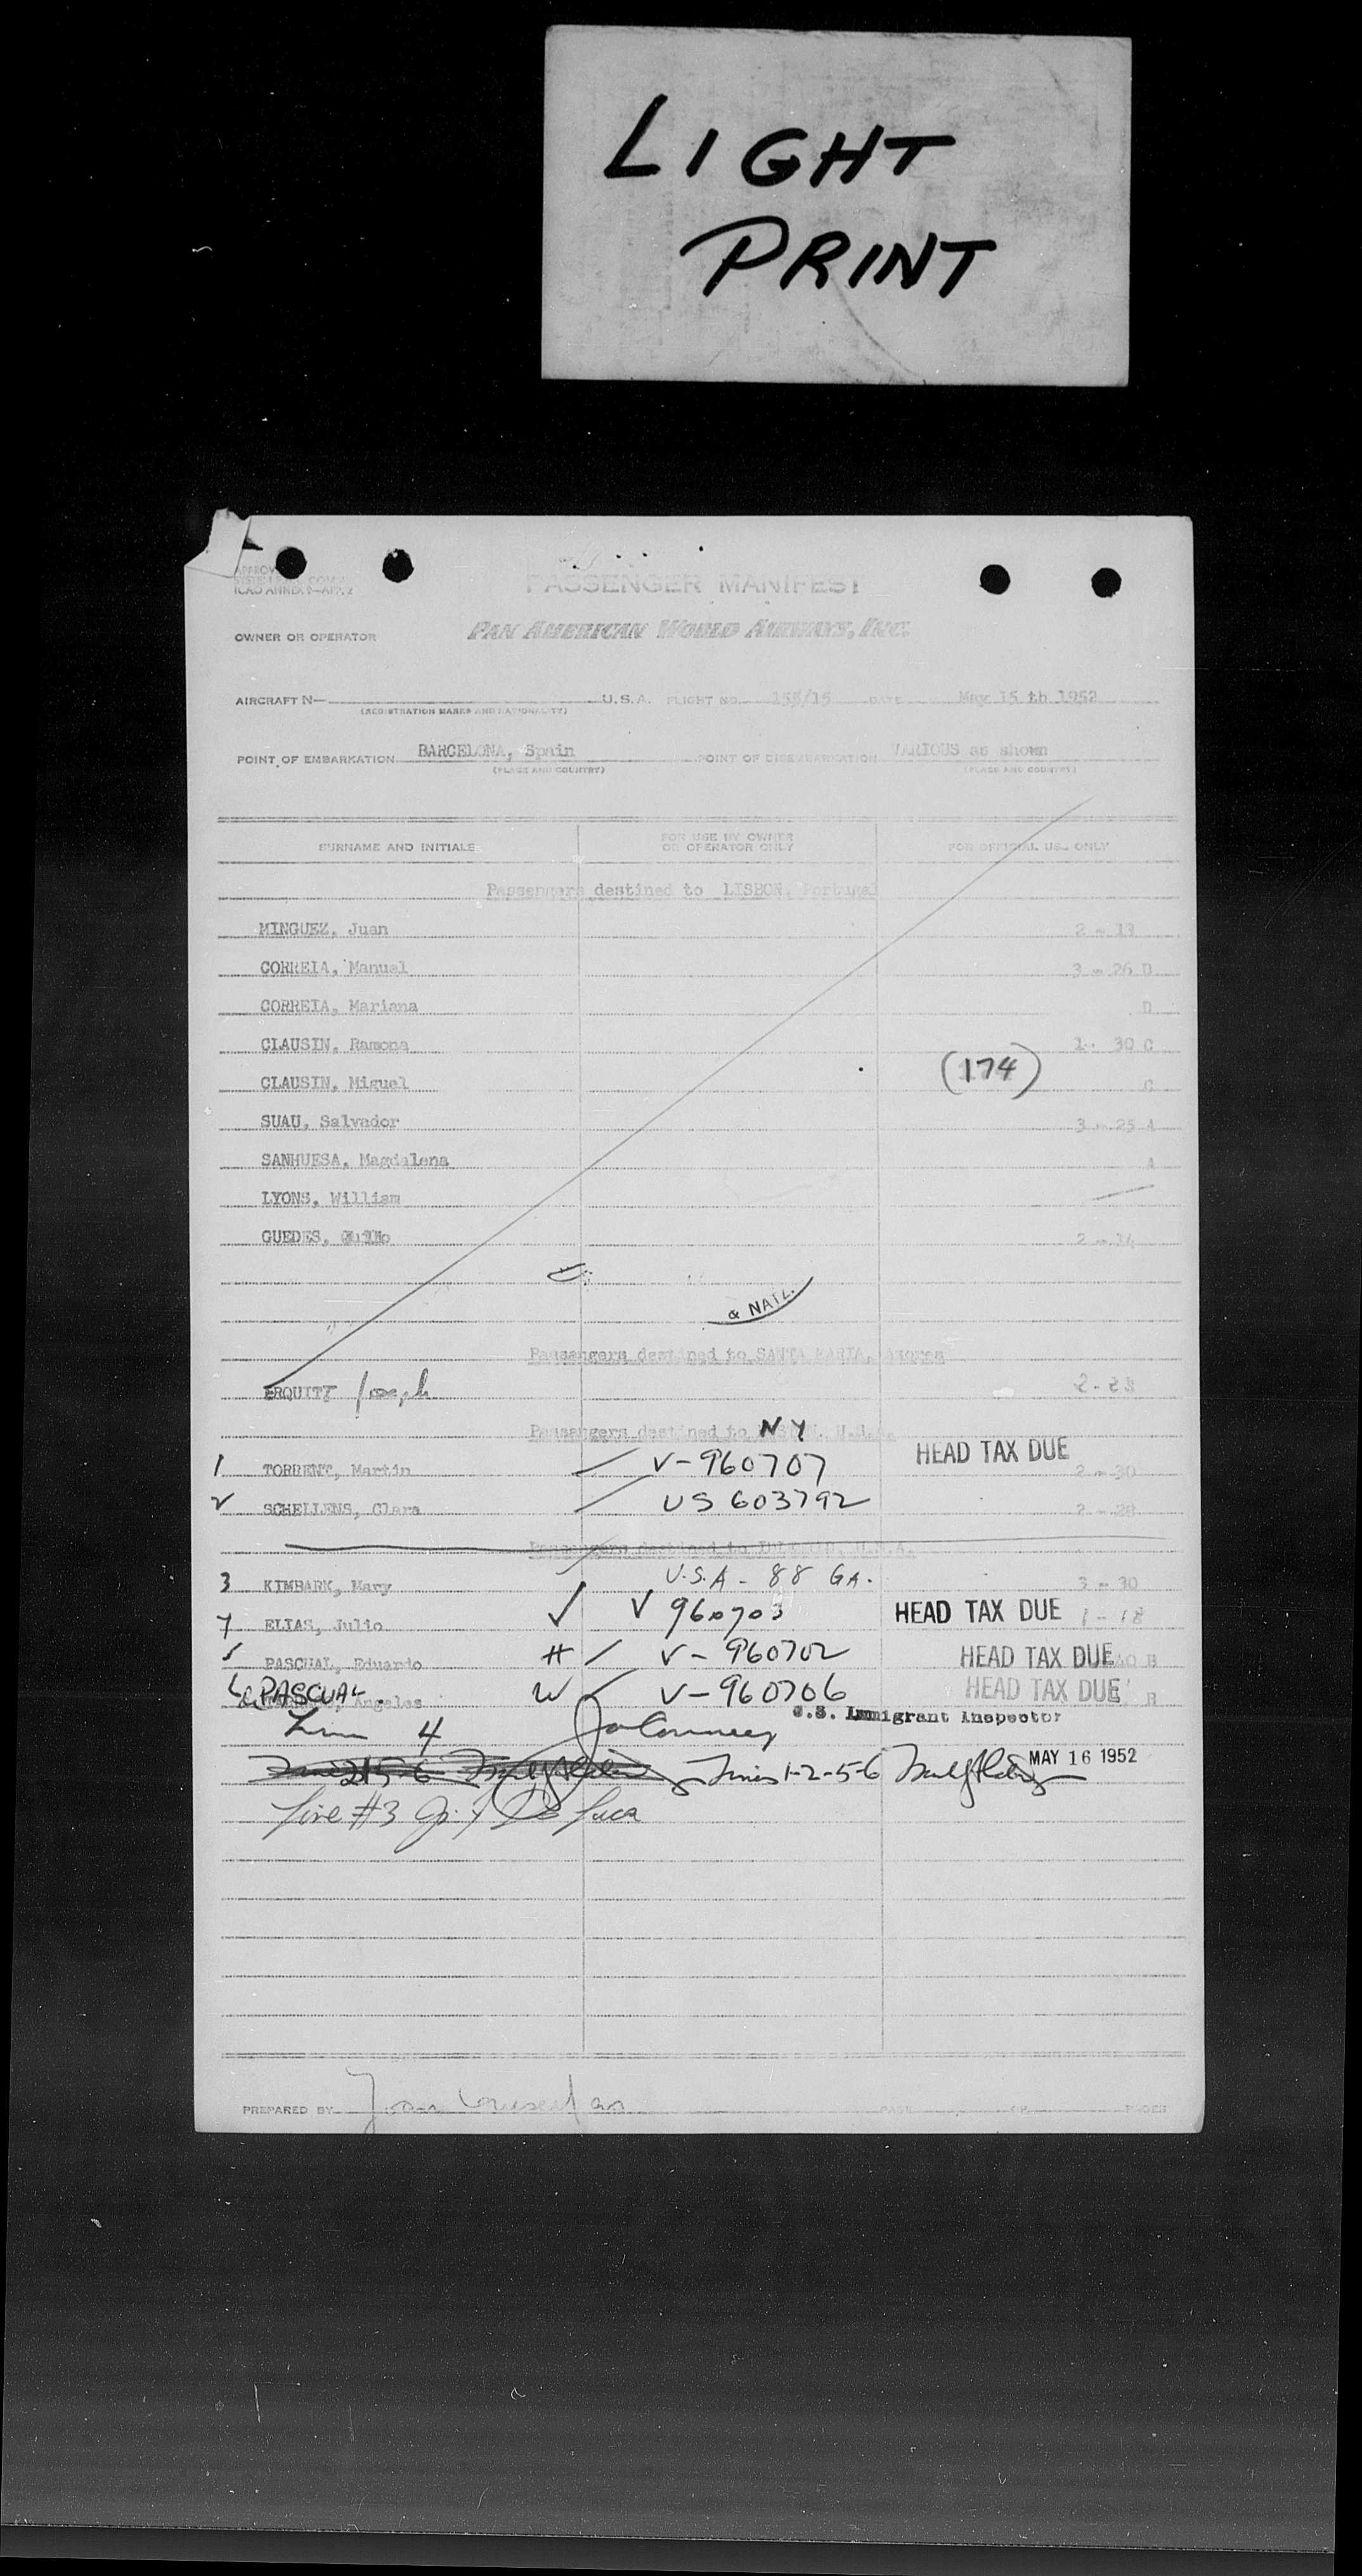 LIGHT
PRINT
PASSENGER MANIFEST
OWNER OR OPERATOR PAN AMERICAN WORLD AIRWAYS, INC.
AIRCRAFT N- U.S.A. FLIGHT NO. 155/15 DATE May 15 th 1952
(REGISTRATION MARKS AND NATIONALITY)
POINT OF EMBARKATION BARCELONA, Spain POINT OF DISEMBARKATION VARIOUS as shown
(PLACE AND COUNTRY) (PLACE AND COUNTRY)
SURNAME AND INITIALS FOR USE BY OWNER OR OPERATOR ONLY FOR OFFICIAL USE ONLY
Passengers destined to LISBON, Portugal
MINGUEZ, Juan 2 - 13
CORREIA, Manuel 3 - 26 D
CORREIA, Mariana D
CLAUSIN, Ramona 1 - 30 C
CLAUSIN, Miguel (174) C
SUAU, Salvador 3 - 25 A
SANHUESA, Magdalena A
LYONS, William
GUEDES, 2 - 34
& NATZ.
Passengers destined to SANTA MARIA, Azores
ERQUITY Joseph 2 - 28
Passengers destined to NY
1 TORRENT, Martin V-960707 HEAD TAX DUE 2 - 30
2 SCHELLENS, Clara US 603792 2 - 28
Passengers destined to U.S.A.
3 KIMBARK, Mary U.S.A - 88 GA. 3 - 30
ELIAS, Julio V 960703 HEAD TAX DUE 1 - 18
5 PASCUAL, Eduardo # V - 960702 HEAD TAX DUE B
6 PASCUAL Angeles W V - 960706 HEAD TAX DUE B
U.S. Immigrant Inspector
Line 4
Lines 1-2-5-6 MAY 16 1952
Line #3
PREPARED BY PAGE OF PAGES